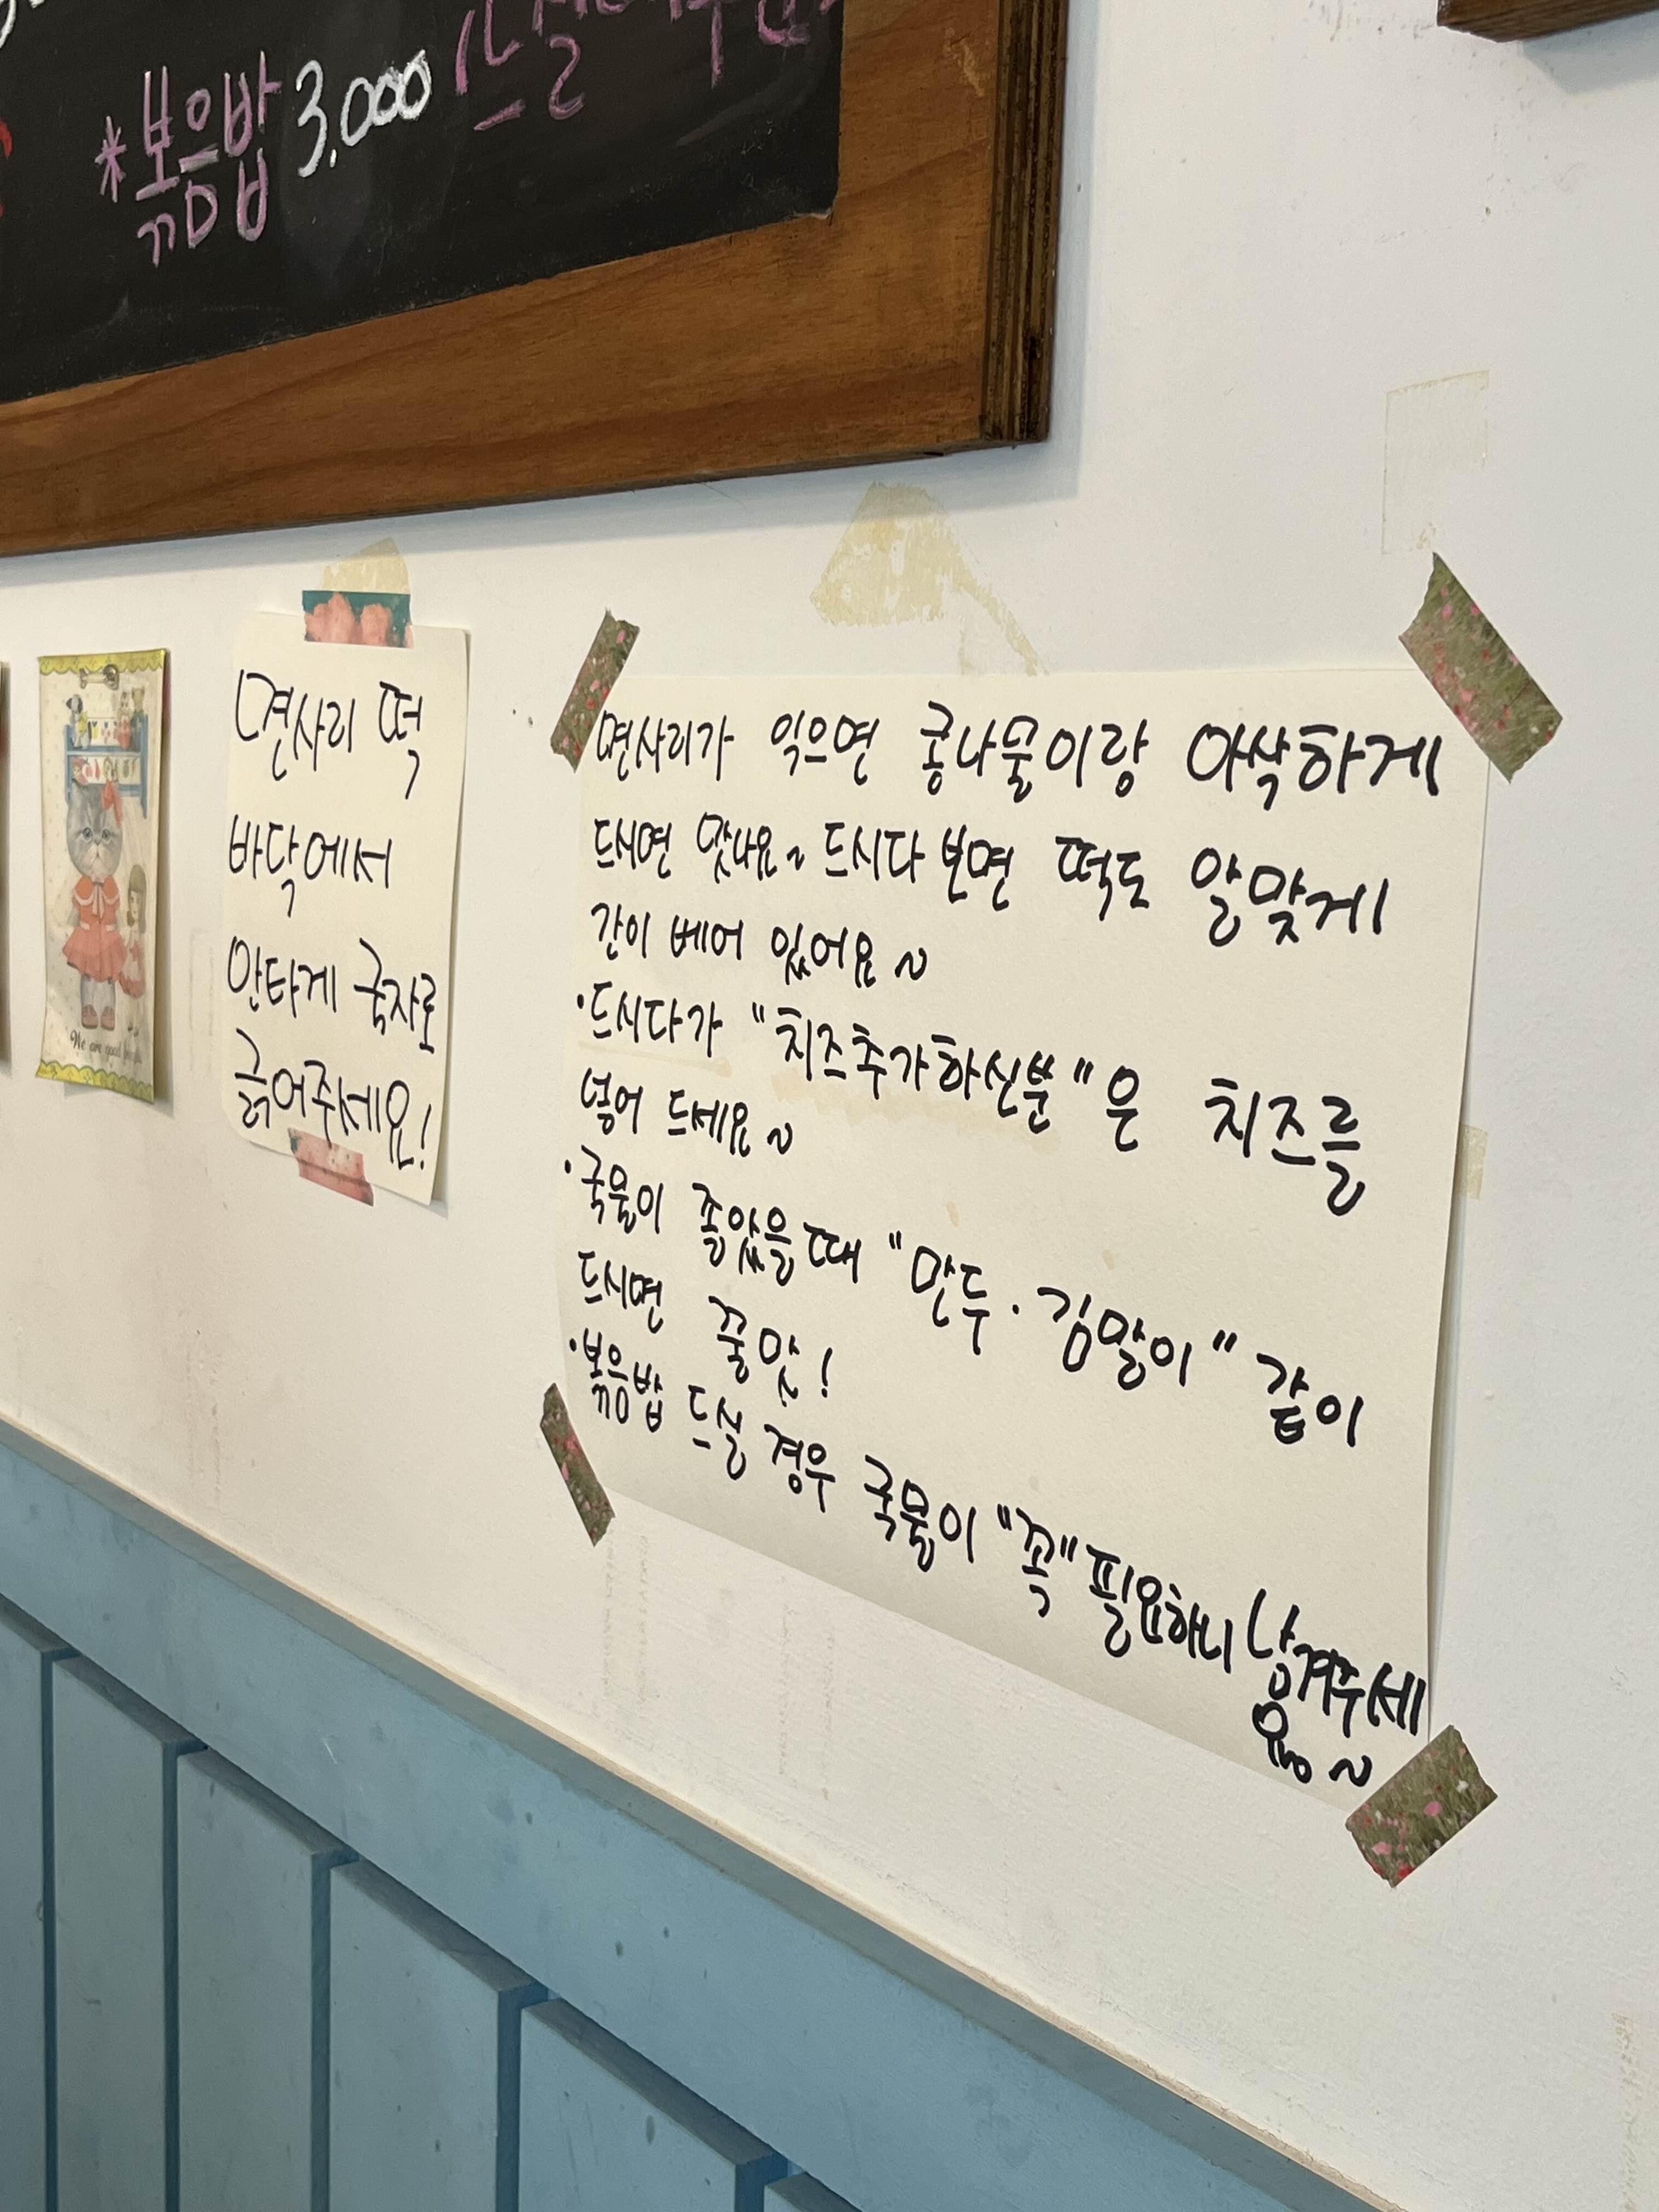 *볶음밥 3.000
면사리 떡
바닥에서
안타게 국자로
긁어주세요!
We are good
면사리가 익으면 콩나물이랑 아삭하게
드시면 맛나요~ 드시다 보면 떡도 알맞게
간이 베어 있어요~
·드시다가 "치즈추가하신분"은 치즈를
넣어 드세요~
·국물이 졸았을때 "만두·김말이" 같이
드시면 꿀맛!
·볶음밥 드실 경우 국물이 "꼭" 필요하니 남겨주세
용~